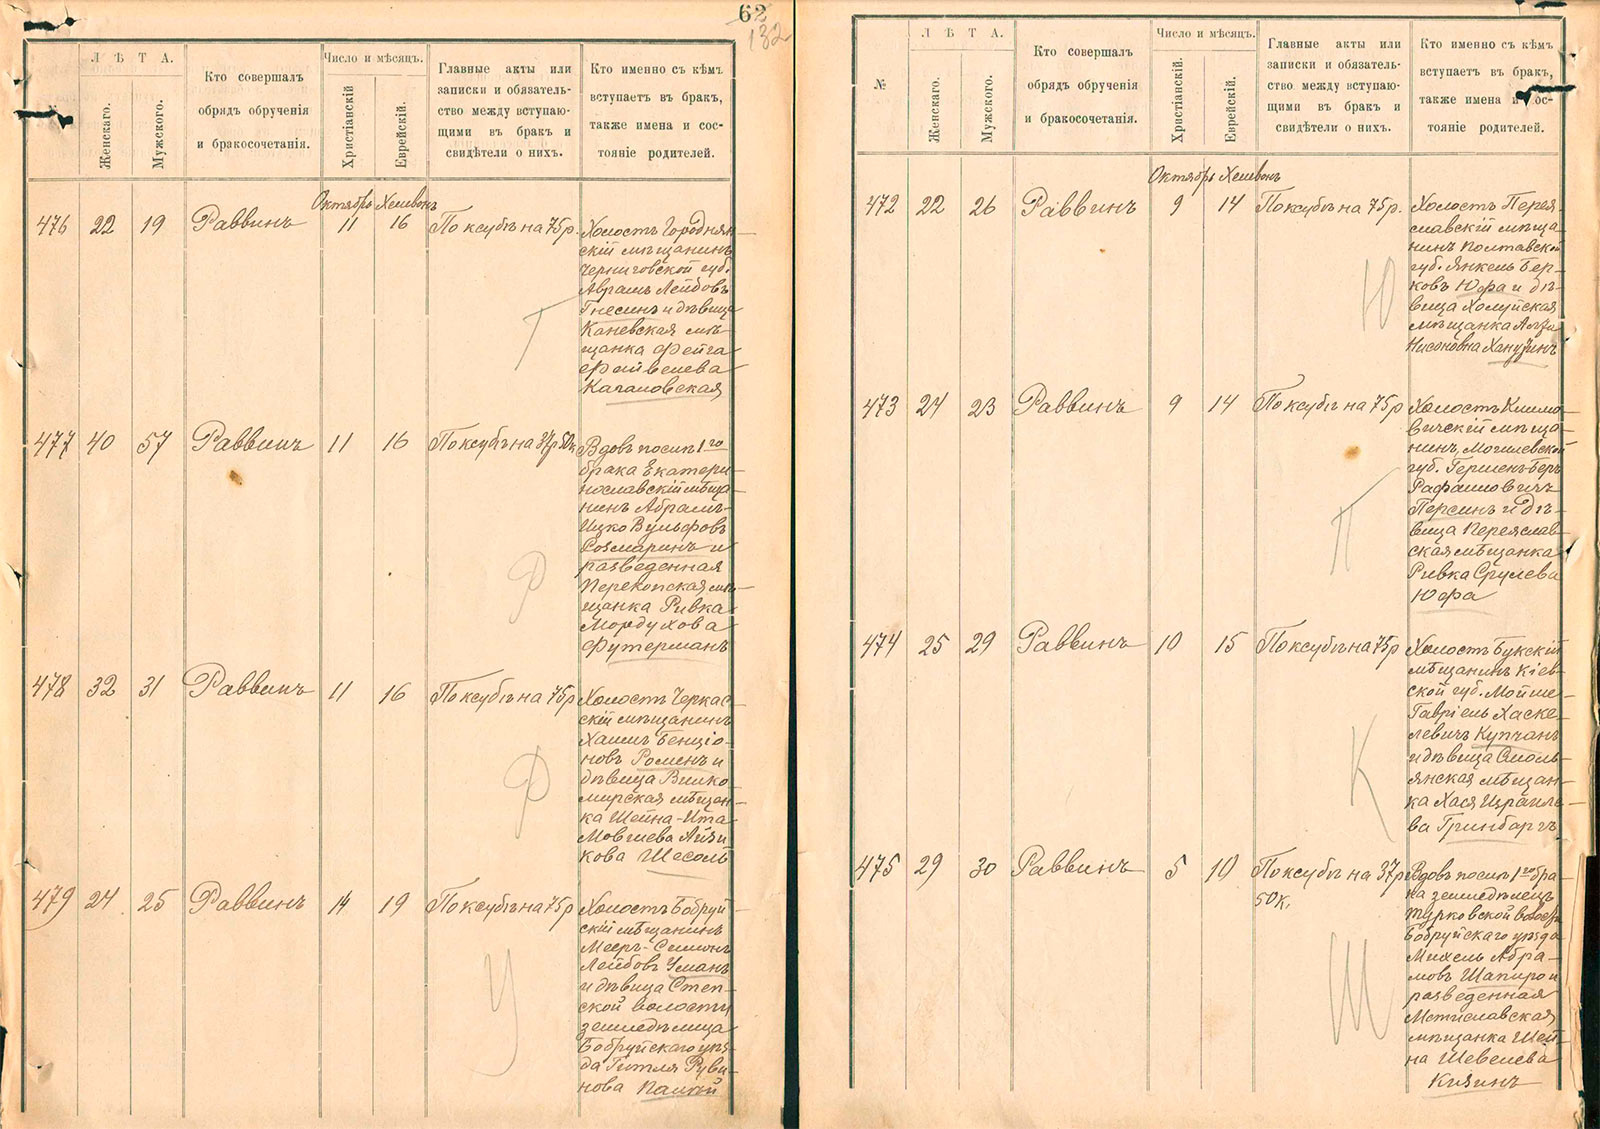 62
132
№
ЛѢТА.
Женскаго.
Мужского.
Кто совершалъ
обрядъ обрученія
и бракосочетанія.
Число и мѣсяцъ.
Христіанскій
Еврейскій.
Главные акты или
записки и обязатель-
ство между вступаю-
щими въ бракъ и
свидѣтели о нихъ.
Кто именно съ кѣмъ
вступаетъ въ бракъ,
также имена и сос-
тояніе родителей.
Октябрь Хешвонъ
476 22 19 Раввинъ 11 16 По ксубѣ на 75 р.
Холостъ Городнян-
скій мѣщанинъ
Черниговской губ.
Аврамъ Лейбовъ
Гнесинъ и дѣвица
Каневская мѣ-
щанка Фейга
Файвелева
Кагановская
Г
477 40 57 Раввинъ 11 16 По ксубѣ на 37 р 50 к.
Вдовъ послѣ 1го
брака Екатери-
нославскій мѣща-
нинъ Абрамъ-
Ицко Вульфовъ
Розмаринъ и
разведенная
Перекопская мѣ-
щанка Ривка
Мордухова
Футерманъ
Р
478 32 31 Раввинъ 11 16 По ксубѣ на 75 р
Холостъ Черкас-
скій мѣщанинъ
Хаимъ Бенціо-
новъ Роменъ и
дѣвица Вилко-
мирская мѣщан-
ка Шейна-Ита
Мовшева Айзи-
кова Шесоль
Р
479 24 25 Раввинъ 14 19 По ксубѣ на 75 р
Холостъ Бобруй-
скій мѣщанинъ
Мееръ-Симонъ
Лейбовъ Уманъ
и дѣвица Степ-
ской волости
земледѣлица
Бобруйскаго уѣз-
да Гитля Руви-
нова Палѣй
У
№
ЛѢТА.
Женскаго.
Мужского.
Кто совершалъ
обрядъ обрученія
и бракосочетанія.
Число и мѣсяцъ.
Христіанскій.
Еврейскій.
Главные акты или
записки и обязатель-
ство между вступаю-
щими въ бракъ и
свидѣтели о нихъ.
Кто именно съ кѣмъ
вступаетъ въ бракъ,
также имена и сос-
тояніе родителей.
Октябрь Хешвонъ
472 22 26 Раввинъ 9 14 По ксубѣ на 75 р.
Холостъ Перея-
славскій мѣща-
нинъ Полтавской
губ. Янкель Бер-
ковъ Юфа и дѣ-
вица Холуйская
мѣщанка
Нисоновна Ханузинъ
Ю
473 24 23 Раввинъ 9 14 По ксубѣ на 75 р
Холостъ Климо-
вичскій мѣща-
нинъ, Могилевской
губ. Гершенъ-Беръ
Рафаиловичъ
Персинъ и дѣ-
вица Переяслав-
ская мѣщанка
Ривка Срулева
Юфа
П
474 25 29 Раввинъ 10 15 По ксубѣ на 75 р
Холостъ Букскій
мѣщанинъ Кіев-
ской губ. Мойше-
Гавріель Хаске-
левичъ Купчанъ
и дѣвица Смоль-
янская мѣщан-
ка Хася Израиле-
ва Гринбаргъ
К
475 29 30 Раввинъ 5 10 По ксубѣ на 37 р
50 к.
Вдовъ послѣ 1го бра-
ка земледѣлецъ
Турковской волости
Бобруйскаго уѣзда
Михель Абра-
мовъ Шапиро и
разведенная
Мстиславская
мѣщанка Шей-
на Шевелева
Кизинъ
Ш